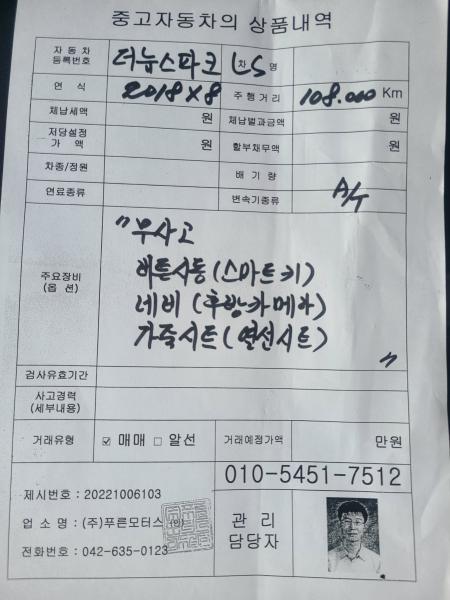 중고자동차의 상품내역
자동차 등록번호 더뉴스파크 LS 차명
연 식 2018 X 8 주행거리 108.000 Km
체납세액 원 체납벌과금액 원
저당설정 가 액 원 할부채무액 원
차종/정원 배 기 량
연료종류 변속기종류 A/T
주요장비 (옵 션)
"무사고
버튼시동(스마트키)
네비(후방카메라)
가죽시트(열선시트)"
검사유효기간
사고경력 (세부내용)
거래유형 ☑ 매매 □ 알선 거래예정가액 만원
010-5451-7512
제시번호 : 20221006103
업 소 명 : (주)푸른모터스 (인)
전화번호 : 042-635-0123
관 리 담당자